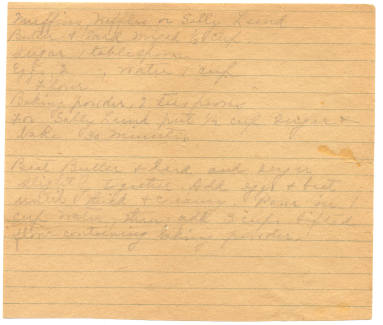 Muffins Waffles or Sally Lund
Butter & Lard mixed 1/8 cup
Sugar 1 tablespoon
Eggs 2, water 1 cup
Flour
Baking powder 2 teaspoons
For Sally Lund put 1/2 cup sugar &
bake 30 minutes

Beat Butter & Lard and Sugar
together. Add eggs & beat
until thick & creamy. Pour in 1
cup water, then add 3 cups sifted
flour containing baking powder.